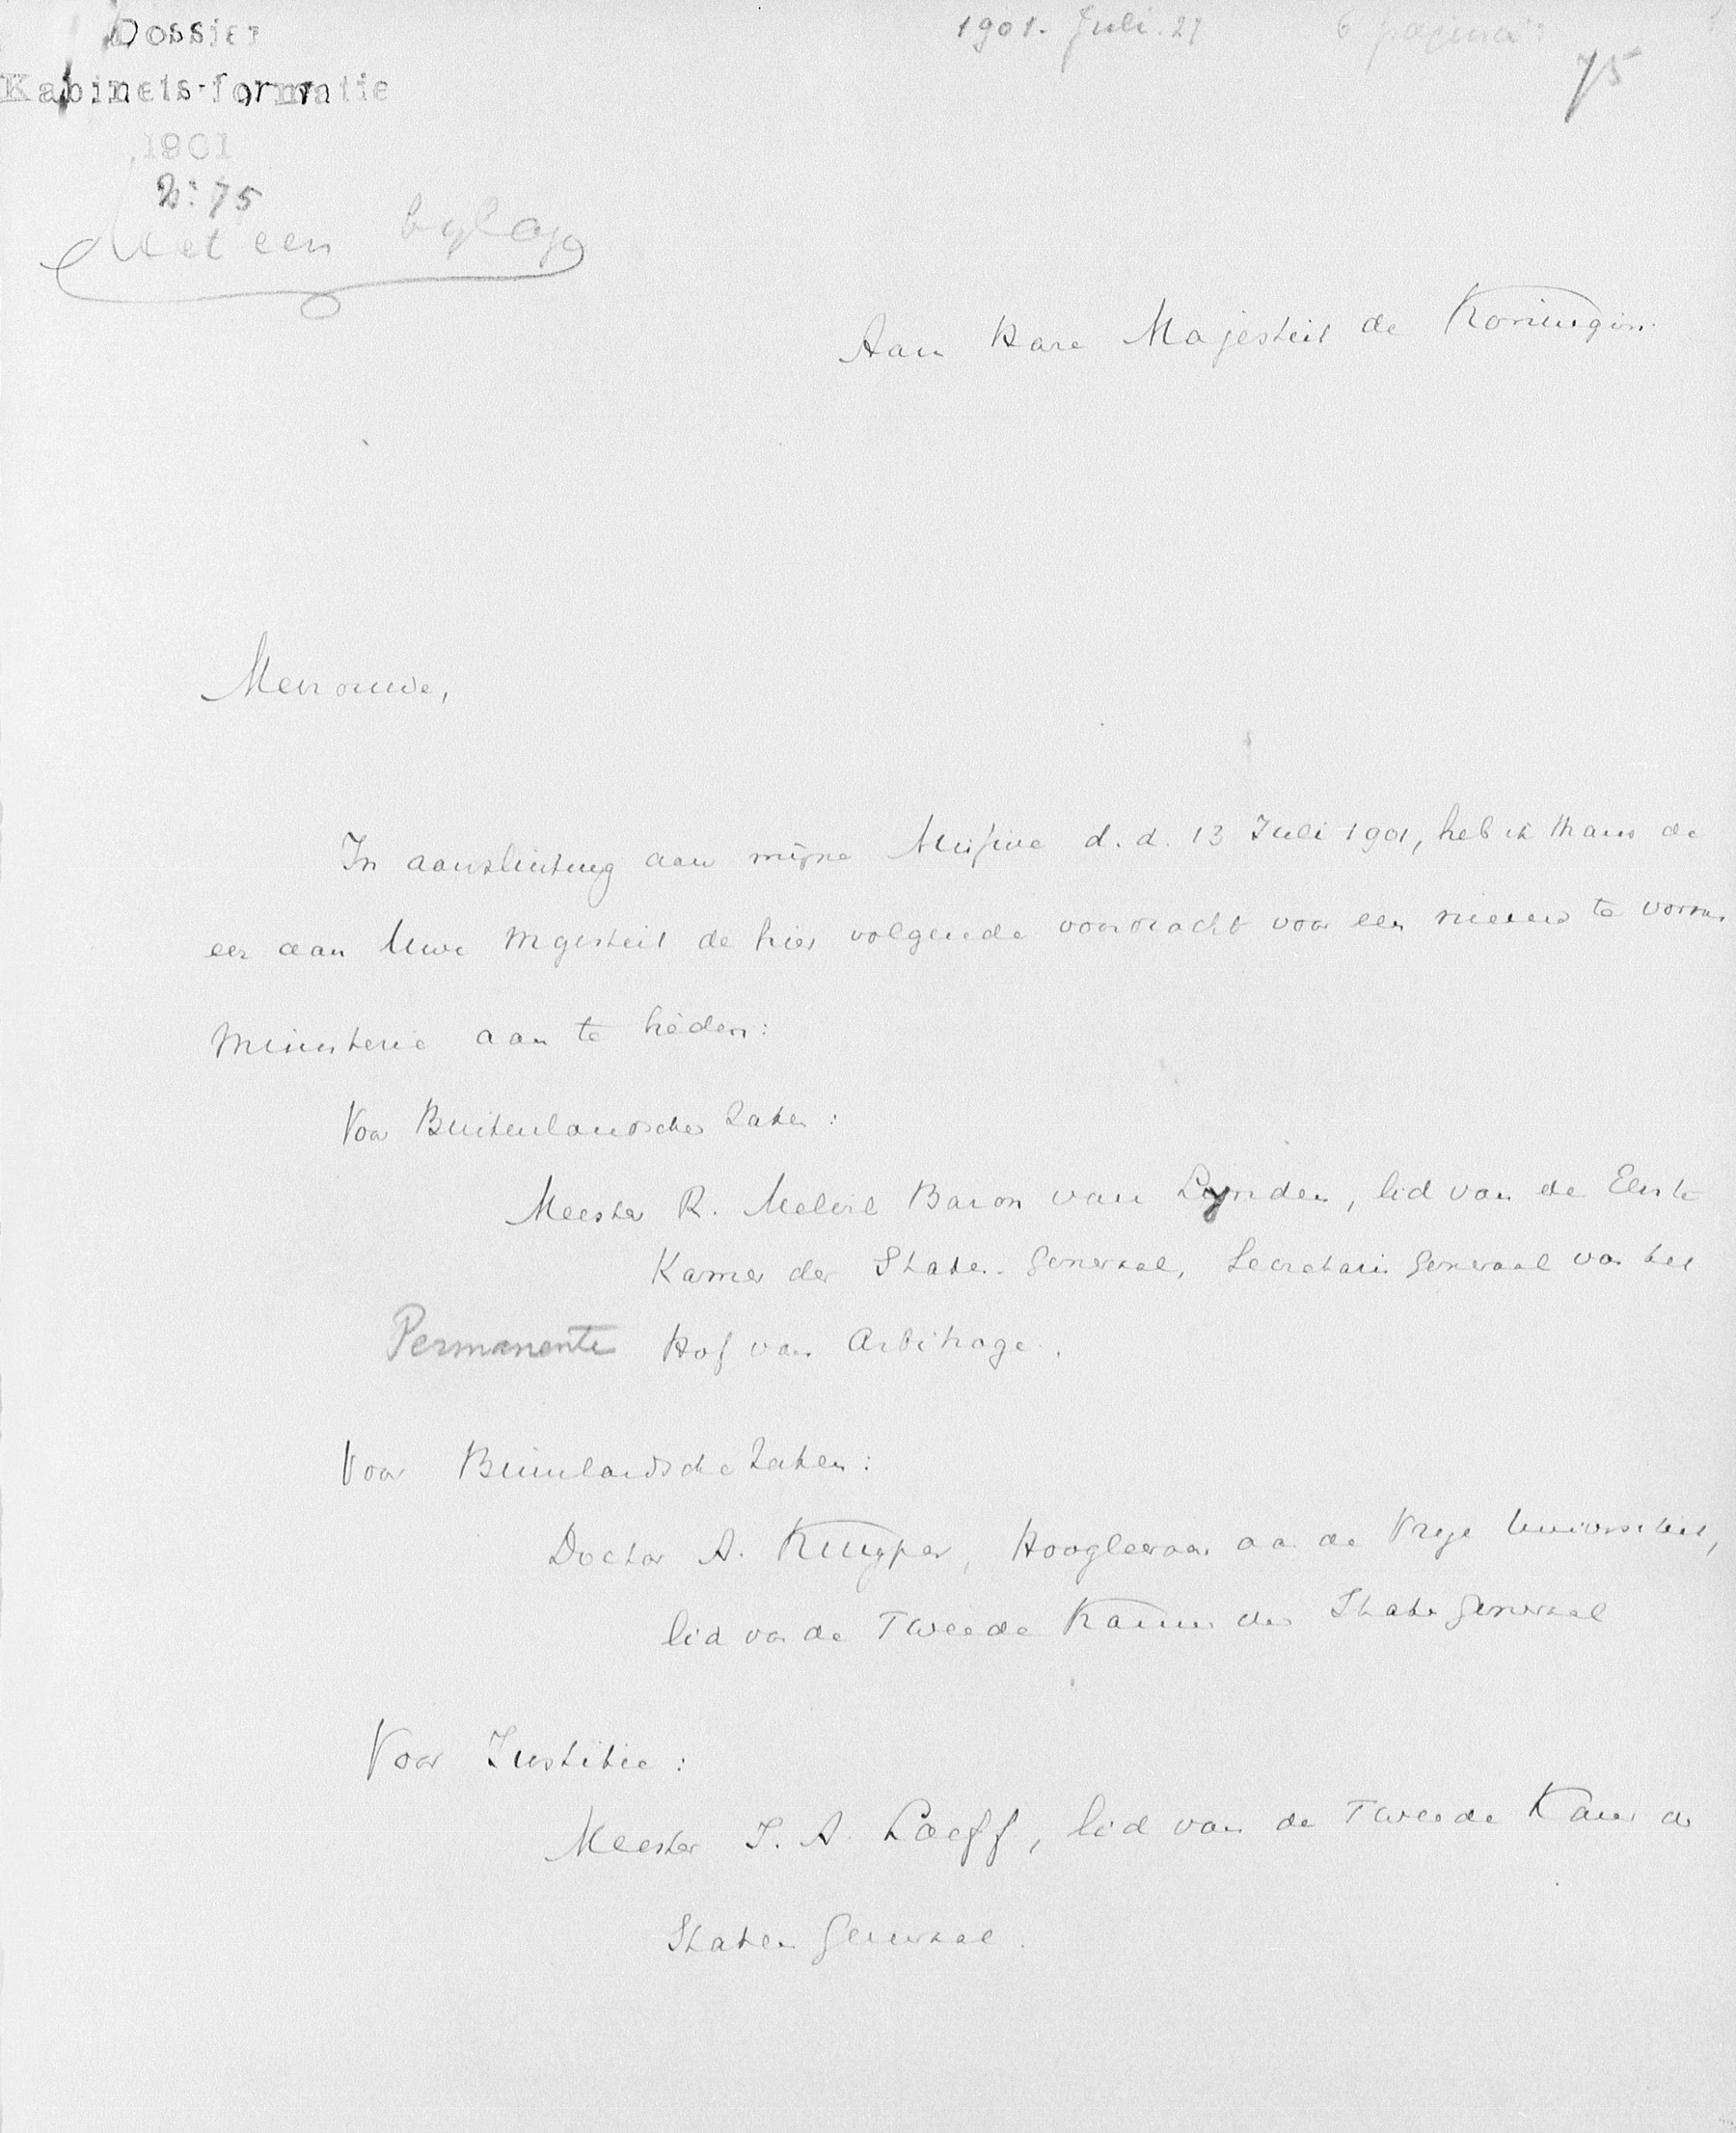 Dossier
Kabinets-formatie
1901
No: 75
Met een bylage
1901. Juli. 27
6 pagina's
75
Aan Hare Majesteit de Koningin.
Mevrouwe,
In aansluiting aan mijne Missive d.d. 13 Juli 1901, heb ik thans de
eer aan Uwe Majesteit de hier volgende voordracht voor een nieuw te vormen
Ministerie aan te bieden:
Voor Buitenlandsche Zaken:
Meester R. Melvil Baron van Lynden, lid van de Eerste
Kamer der Staten-Generaal, Secretaris Generaal van het
Permanente Hof van Arbitrage.
Voor Binnenlandsche Zaken:
Doctor A. Kuyper, Hoogleeraar aan de Vrije Universiteit,
lid van de Tweede Kamer der Staten Generaal
Voor Justitie:
Meester J. A. Loeff, lid van de Tweede Kamer der
Staten Generaal.